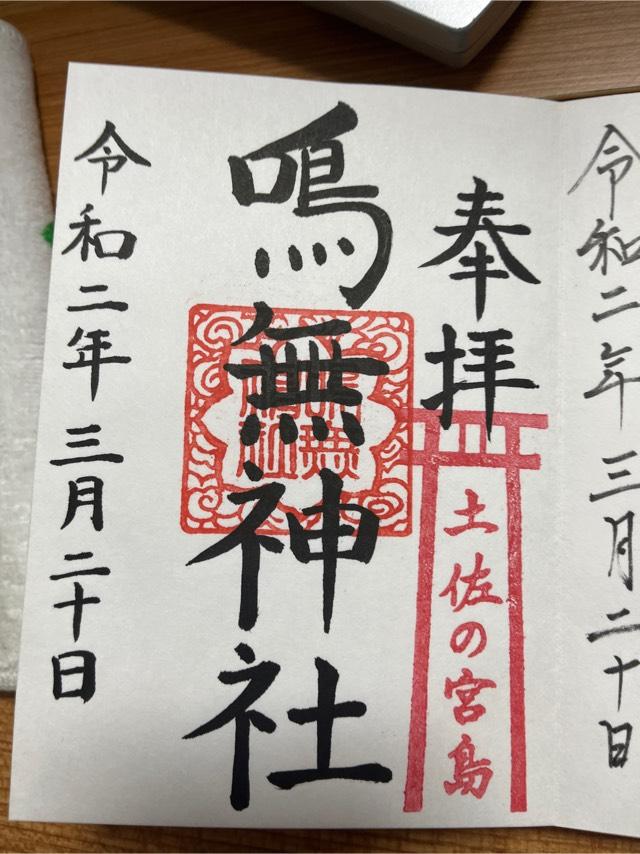 令和二年三月二十日
奉拝
土佐の宮島
鳴無神社
令和二年三月二十日